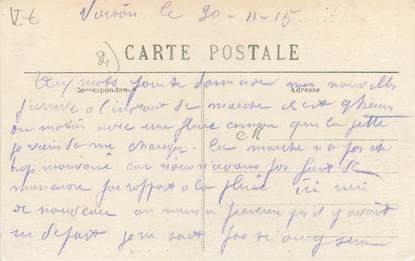 Voiron le 30-11-15
CARTE POSTALE
Correspondance Adresse
mots pour te donner mes nouvelles
j'arrive à l'instant de marche il est 9 heures
du matin avec une pluie comme qui la jette
je viens de me changer. La marche n'a pas été
trop mauvaise car nous n'avons pas fait de
manœuvre par rapport a la pluie ici rien
de nouveau on nous a prévenu qu'il y avait
un départ je ne sait pas si j'en serai